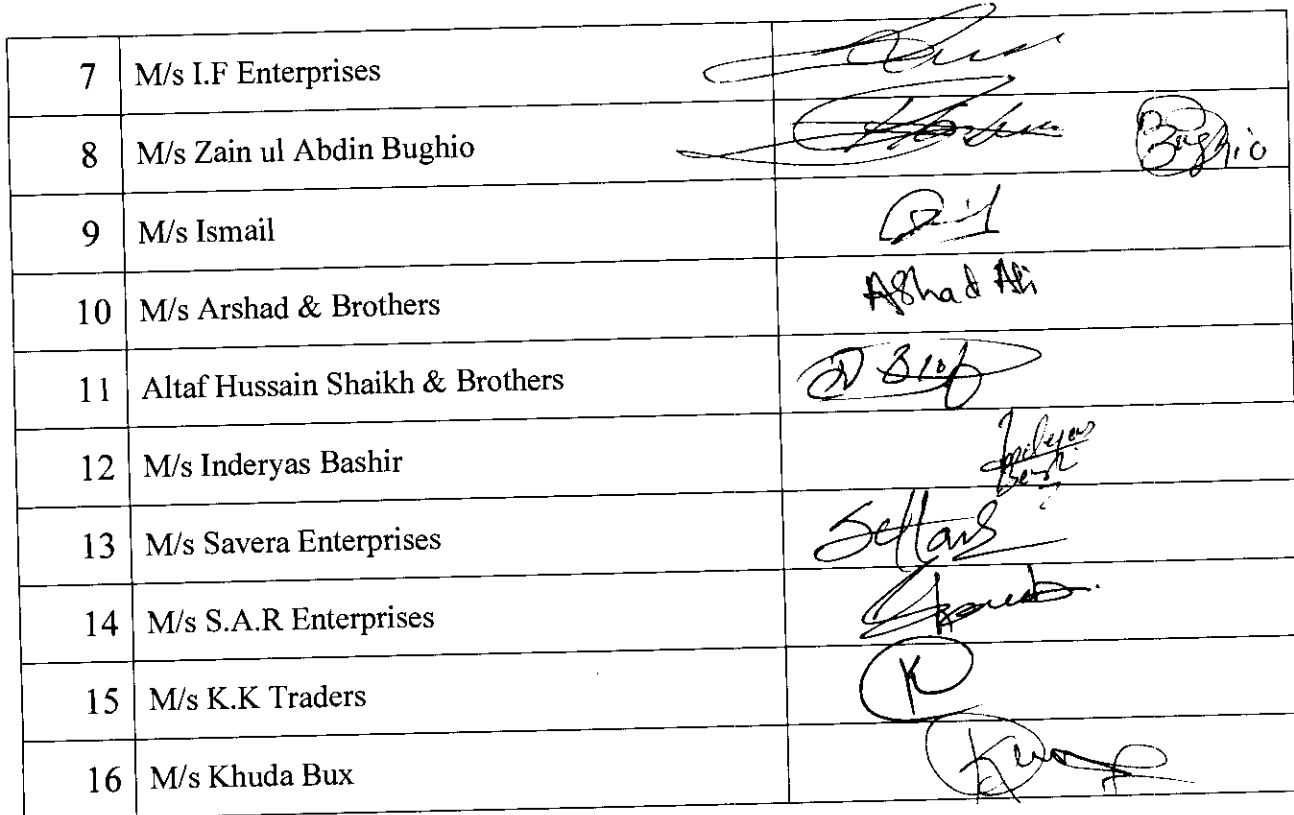 7 M/s I.F Enterprises
8 M/s Zain ul Abdin Bughio Bughio
9 M/s Ismail
10 M/s Arshad & Brothers Ashad Ali
11 Altaf Hussain Shaikh & Brothers
12 M/s Inderyas Bashir
13 M/s Savera Enterprises
14 M/s S.A.R Enterprises
15 M/s K.K Traders K
16 M/s Khuda Bux